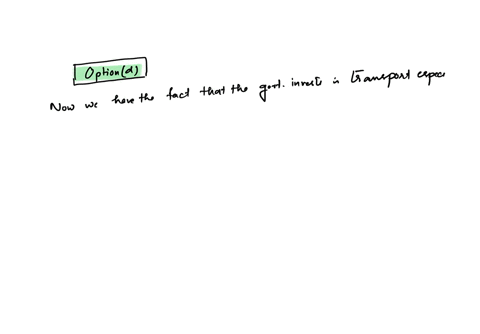 Option(d)
Now we have the fact that the govt. invests in transport espec